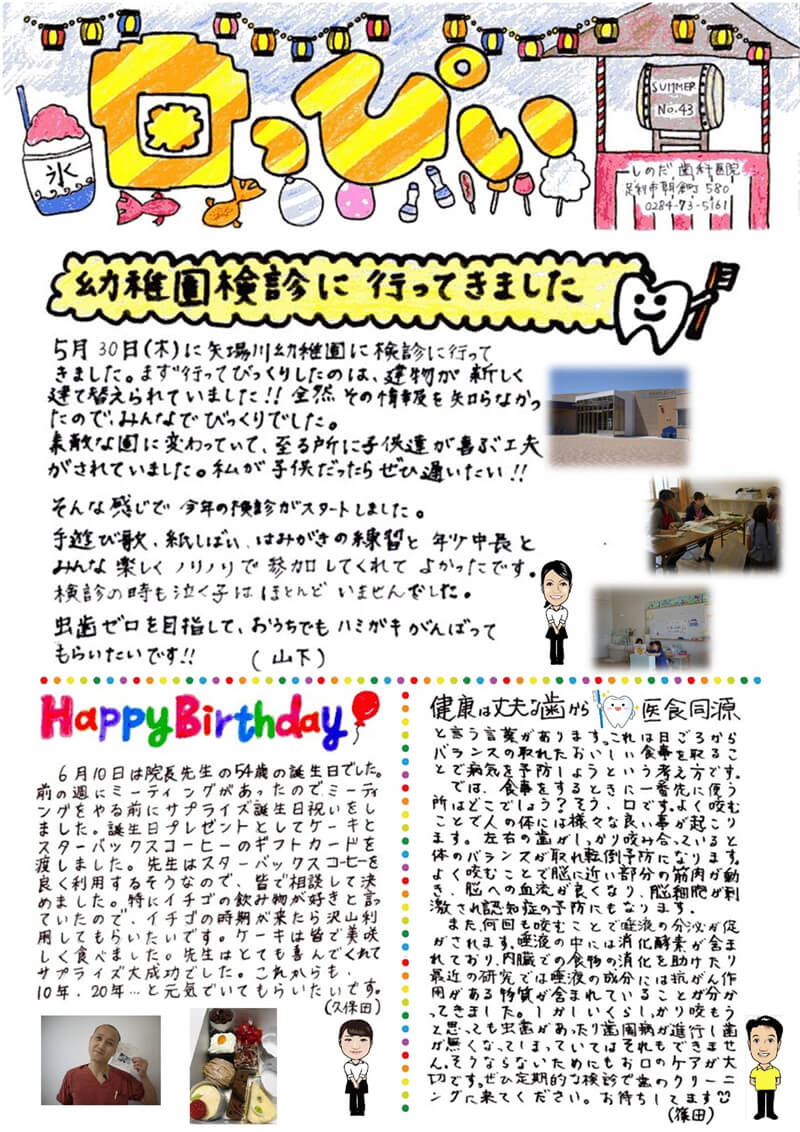 口っぴぃ
氷
SUMMER
No.43
しのだ歯科医院
足利市朝倉町580
0284-73-5161
幼稚園検診に行ってきました
5月30日(木)に矢場川幼稚園に検診に行って
きました。まず行ってびっくりしたのは、建物が新しく
建て替えられていました!!全然その情報を知らなかっ
たので、みんなでびっくりでした。
素敵な園に変わっていて、至る所に子供達が喜ぶ工夫
がされていました。私が子供だったらぜひ通いたい!!
そんな感じで今年の検診がスタートしました。
手遊び歌、紙しばい、はみがきの練習と年少中長と
みんな楽しくノリノリで参加してくれてよかったです。
検診の時も泣く子はほとんどいませんでした。
虫歯ゼロを目指して、おうちでもハミガキがんばって
もらいたいです!! (山下)
Happy Birthday
6月10日は院長先生の54歳の誕生日でした。
前の週にミーティングがあったのでミーティ
ングをやる前にサプライズ誕生日祝いをし
ました。誕生日プレゼントとしてケーキと
スターバックスコーヒーのギフトカードを
渡しました。先生はスターバックスコーヒーを
良く利用するそうなので、皆で相談して決
めました。特にイチゴの飲み物が好きと言っ
ていたので、イチゴの時期が来たら沢山利
用してもらいたいです。ケーキは皆で美味
しく食べました。先生はとても喜んでくれて
サプライズ大成功でした。これからも、
10年、20年…と元気でいてもらいたいです。
(久保田)
健康は丈夫な歯から 医食同源
と言う言葉があります。これは日ごろから
バランスの取れたおいしい食事を取るこ
とで病気を予防しようという考え方です。
では、食事をするときに一番先に使う
所はどこでしょう?そう、口です。よく咬む
ことで人の体には様々な良い事が起こり
ます。左右の歯がしっかり咬み合っていると
体のバランスが取れ転倒予防になります。
よく咬むことで脳に近い部分の筋肉が動
き、脳への血流が良くなり、脳細胞が刺
激され認知症の予防にもなります。
また、何回も咬むことで唾液の分泌が促
がされます。唾液の中には消化酵素が含ま
れており、内臓での食物の消化を助けたり
最近の研究では唾液の成分には抗がん作
用がある物質が含まれていることが分か
ってきました。しかしいくらしっかり咬もう
と思っても虫歯があったり歯周病が進行し歯
が無くなってしまっていてはそれもできませ
ん。そうならないためにもお口のケアが大
切です。ぜひ定期的な検診で歯のクリーニ
ングに来てください。お待ちしてます
(篠田)